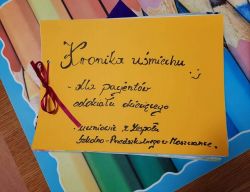 Kronika uśmiechu :)
- dla pacjentów
oddziału dziecięcego
- uczniowie z Zespołu
Szkolno-Przedszkolnego w